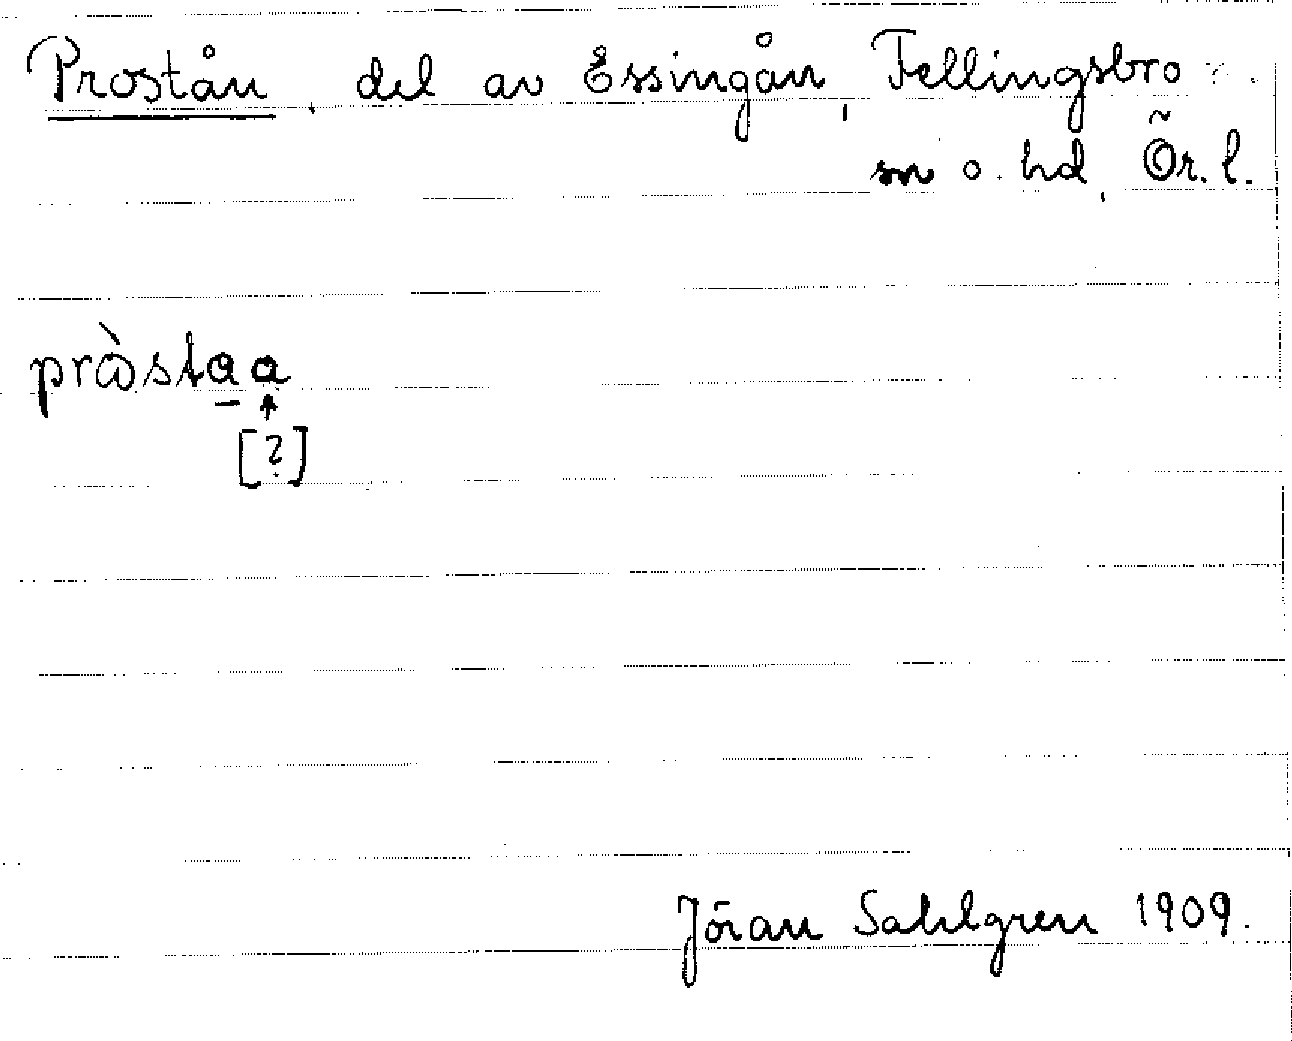 Prostån, del av Essingån, Fellingsbro
sn o. hd, Ör. l.
pròstaa
[?]
Jöran Sahlgren 1909.